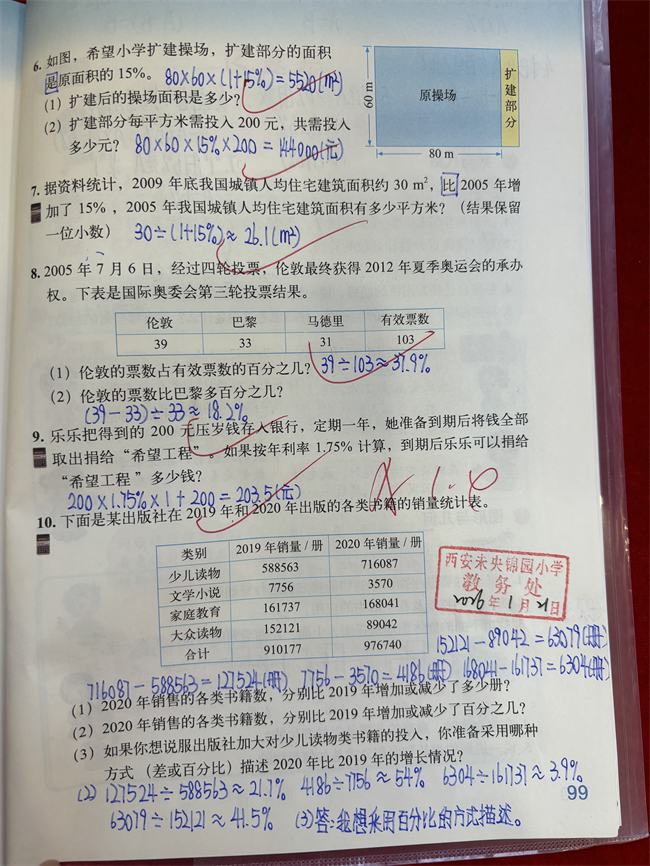 6. 如图，希望小学扩建操场，扩建部分的面积
是原面积的 15%。 80×60×(1+15%)=5520(m²)
(1) 扩建后的操场面积是多少?
(2) 扩建部分每平方米需投入 200 元，共需投入
多少元? 80×60×15%×200=144000(元)
60 m
原操场
扩建部分
80 m
7. 据资料统计，2009 年底我国城镇人均住宅建筑面积约 30 m²，比 2005 年增
加了 15%，2005 年我国城镇人均住宅建筑面积有多少平方米? (结果保留
一位小数) 30÷(1+15%)≈26.1(m²)
8. 2005 年 7 月 6 日，经过四轮投票，伦敦最终获得 2012 年夏季奥运会的承办
权。下表是国际奥委会第三轮投票结果。
伦敦 巴黎 马德里 有效票数
39 33 31 103
(1) 伦敦的票数占有效票数的百分之几? 39÷103≈37.9%
(2) 伦敦的票数比巴黎多百分之几?
(39-33)÷33≈18.2%
9. 乐乐把得到的 200 元压岁钱存入银行，定期一年，她准备到期后将钱全部
取出捐给“希望工程”。如果按年利率 1.75% 计算，到期后乐乐可以捐给
“希望工程”多少钱?
200×1.75%×1+200=203.5(元)
10. 下面是某出版社在 2019 年和 2020 年出版的各类书籍的销量统计表。
类别 2019 年销量 / 册 2020 年销量 / 册
少儿读物 588563 716087
文学小说 7756 3570
家庭教育 161737 168041
大众读物 152121 89042
合计 910177 976740
西安未央锦园小学
教务处
年1月 日
152121-89042=63079(册)
716087-588563=127524(册) 7756-3570=4186(册) 168041-161737=6304(册)
(1) 2020 年销售的各类书籍数，分别比 2019 年增加或减少了多少册?
(2) 2020 年销售的各类书籍数，分别比 2019 年增加或减少了百分之几?
(3) 如果你想说服出版社加大对少儿读物类书籍的投入，你准备采用哪种
方式 (差或百分比) 描述 2020 年比 2019 年的增长情况?
(2) 127524÷588563≈21.7% 4186÷7756≈54% 6304÷161737≈3.9%
63079÷152121≈41.5% (3)答:我想采用百分比的方式描述。
99